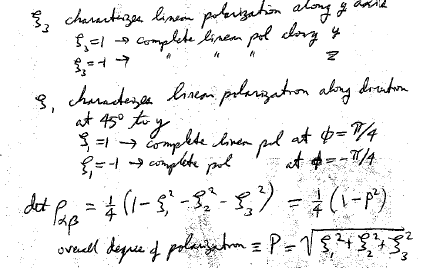 ξ₃ characterizes linear polarization along y axis
ξ₃=1 → complete linear pol along y
ξ₃=-1 → " " " z
ξ₁ characterizes linear polarization along direction
at 45° to y
ξ₁=1 → complete linear pol at φ=π/4
ξ₁=-1 → complete pol at φ=-π/4
det ρ_αβ = 1/4 (1-ξ₁²-ξ₂²-ξ₃²) = 1/4 (1-P²)
overall degree of polarization ≡ P = √ξ₁²+ξ₂²+ξ₃²